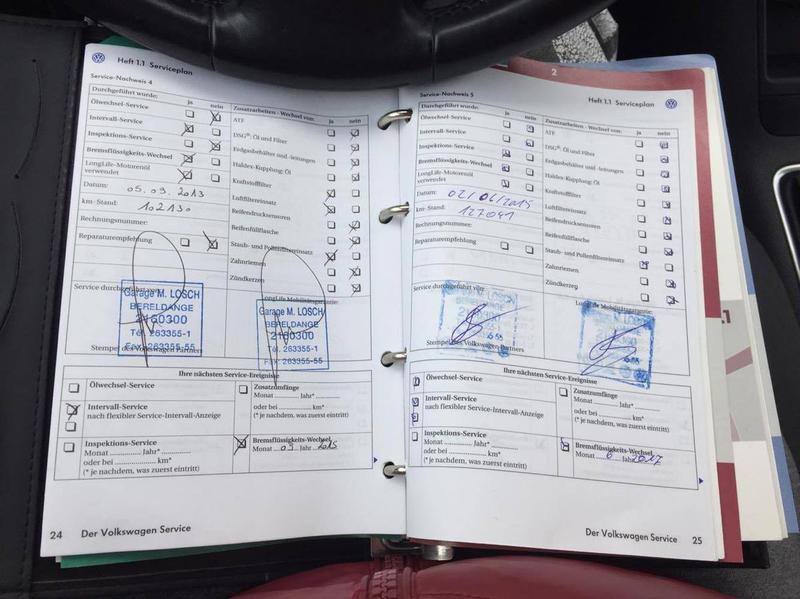 Heft 1.1 Serviceplan
Service-Nachweis 4
Durchgeführt wurde: ja nein
Ölwechsel-Service
Intervall-Service
Inspektions-Service
Bremsflüssigkeits-Wechsel
LongLife-Motorenöl
verwendet
Datum: 05.09.2013
km-Stand: 102130
Rechnungsnummer:
Reparaturempfehlung
Zusatzarbeiten - Wechsel von: ja nein
ATF
DSG®: Öl und Filter
Erdgasbehälter und -leitungen
Haldex-Kupplung: Öl
Kraftstofffilter
Luftfiltereinsatz
Reifendrucksensoren
Reifenfüllflasche
Staub- und Pollenfiltereinsatz
Zahnriemen
Zündkerzen
Service durchgeführt von:
Garage M. LOSCH
BERELDANGE
2160300
Tél. 263355-1
Fax: 263355-55
Stempel des Volkswagen Partners
LongLife Mobilitätsgarantie:
Garage M. LOSCH
BERELDANGE
2160300
Tél. 263355-1
Fax: 263355-55
Ihre nächsten Service-Ereignisse
Ölwechsel-Service
Intervall-Service
nach flexibler Service-Intervall-Anzeige
Inspektions-Service
Monat ............ Jahr*............
oder bei ................ km*
(* je nachdem, was zuerst eintritt)
Zusatzumfänge
Monat ............ Jahr*............
oder bei ................ km*
(* je nachdem, was zuerst eintritt)
Bremsflüssigkeits-Wechsel
Monat 09 Jahr 2015
24 Der Volkswagen Service
Service-Nachweis 5
Heft 1.1 Serviceplan
Durchgeführt wurde: ja nein
Ölwechsel-Service
Intervall-Service
Inspektions-Service
Bremsflüssigkeits-Wechsel
LongLife-Motorenöl
verwendet
Datum: 02/06/2015
km-Stand: 127041
Rechnungsnummer:
Reparaturempfehlung
Zusatzarbeiten - Wechsel von: ja nein
ATF
DSG®: Öl und Filter
Erdgasbehälter und -leitungen
Haldex-Kupplung: Öl
Kraftstofffilter
Luftfiltereinsatz
Reifendrucksensoren
Reifenfüllflasche
Staub- und Pollenfiltereinsatz
Zahnriemen
Zündkerzen
Service durchgeführt von:
LOSCH
Stempel des Volkswagen Partners
LongLife Mobilitätsgarantie:
Ihre nächsten Service-Ereignisse
Ölwechsel-Service
Intervall-Service
nach flexibler Service-Intervall-Anzeige
Inspektions-Service
Monat ............ Jahr*............
oder bei ................ km*
(* je nachdem, was zuerst eintritt)
Zusatzumfänge
Monat ............ Jahr*............
oder bei ................ km*
(* je nachdem, was zuerst eintritt)
Bremsflüssigkeits-Wechsel
Monat 6 Jahr 2017
Der Volkswagen Service 25
2